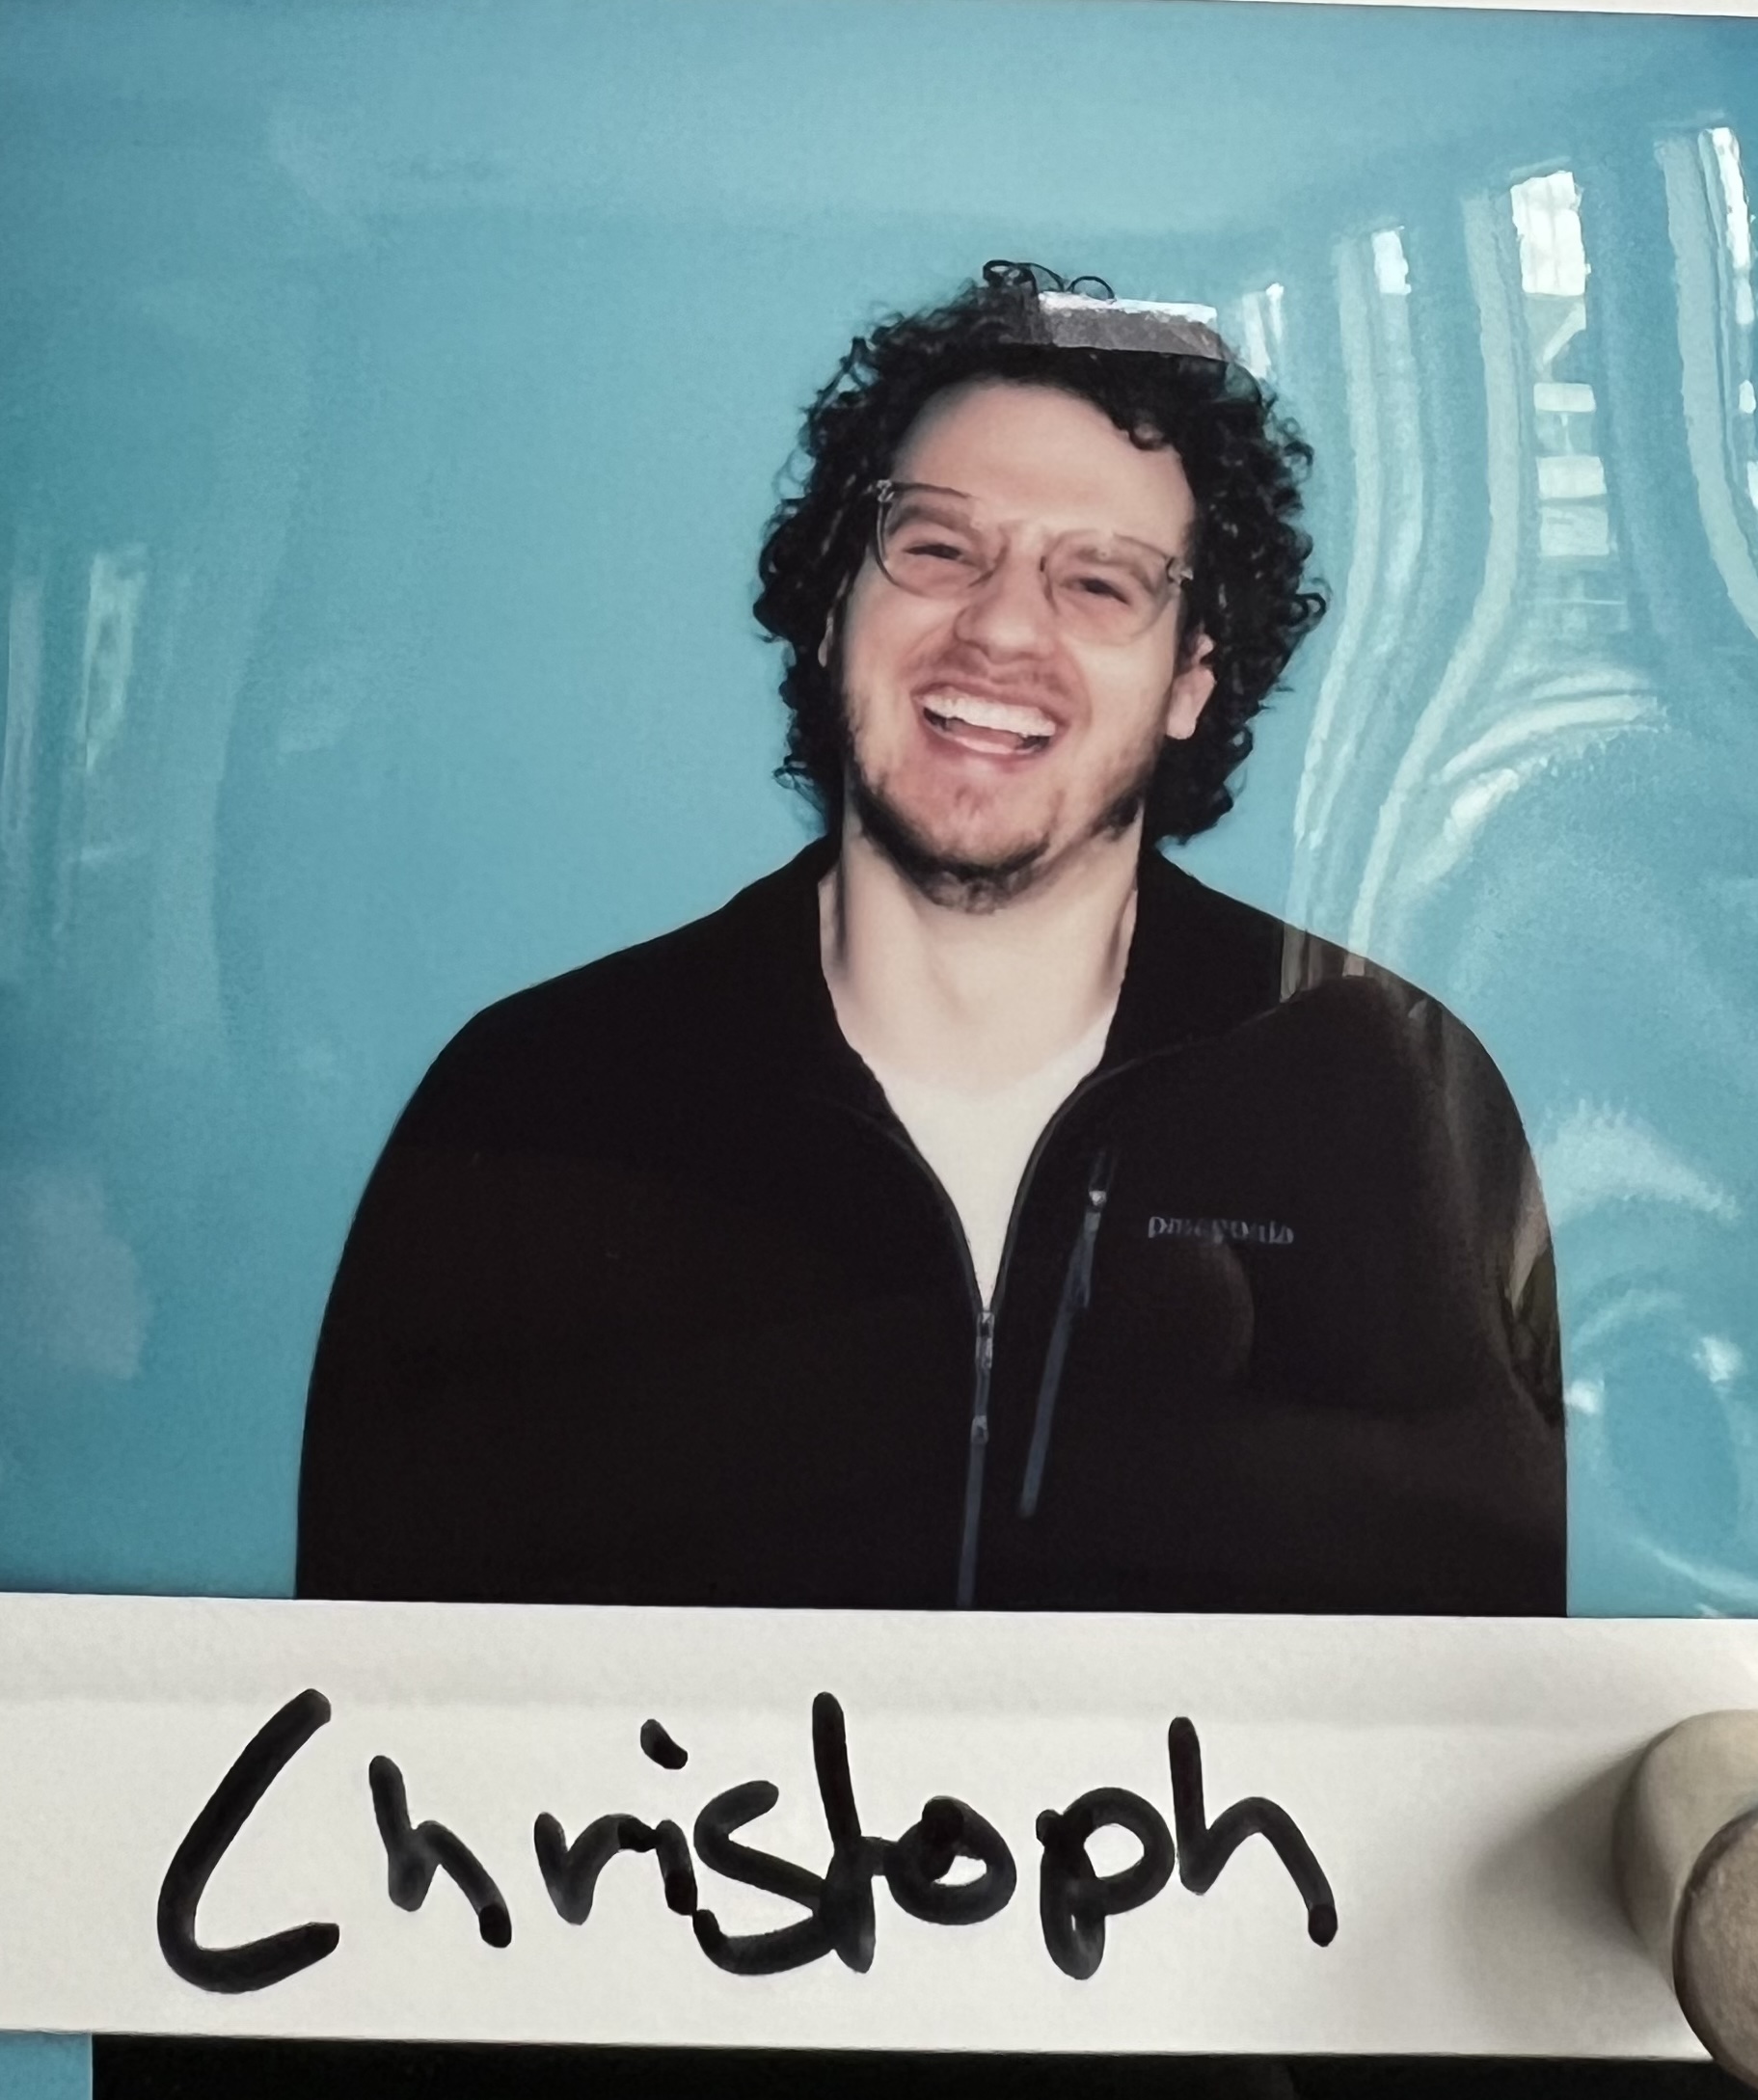 patagonia
Christoph